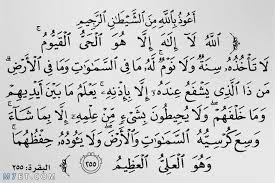 أَعُوذُ بِاللَّهِ مِنَ الشَّيْطَانِ الرَّجِيمِ
اللَّهُ لَا إِلَٰهَ إِلَّا هُوَ الْحَيُّ الْقَيُّومُ ۚ
لَا تَأْخُذُهُ سِنَةٌ وَلَا نَوْمٌ ۚ لَّهُ مَا فِي السَّمَاوَاتِ وَمَا فِي الْأَرْضِ ۗ
مَن ذَا الَّذِي يَشْفَعُ عِندَهُ إِلَّا بِإِذْنِهِ ۚ يَعْلَمُ مَا بَيْنَ أَيْدِيهِمْ
وَمَا خَلْفَهُمْ ۖ وَلَا يُحِيطُونَ بِشَيْءٍ مِّنْ عِلْمِهِ إِلَّا بِمَا شَاءَ ۚ
وَسِعَ كُرْسِيُّهُ السَّمَاوَاتِ وَالْأَرْضَ ۖ وَلَا يَئُودُهُ حِفْظُهُمَا ۚ
وَهُوَ الْعَلِيُّ الْعَظِيمُ ٢٥٥
البقرة: ٢٥٥
M7ET.COM